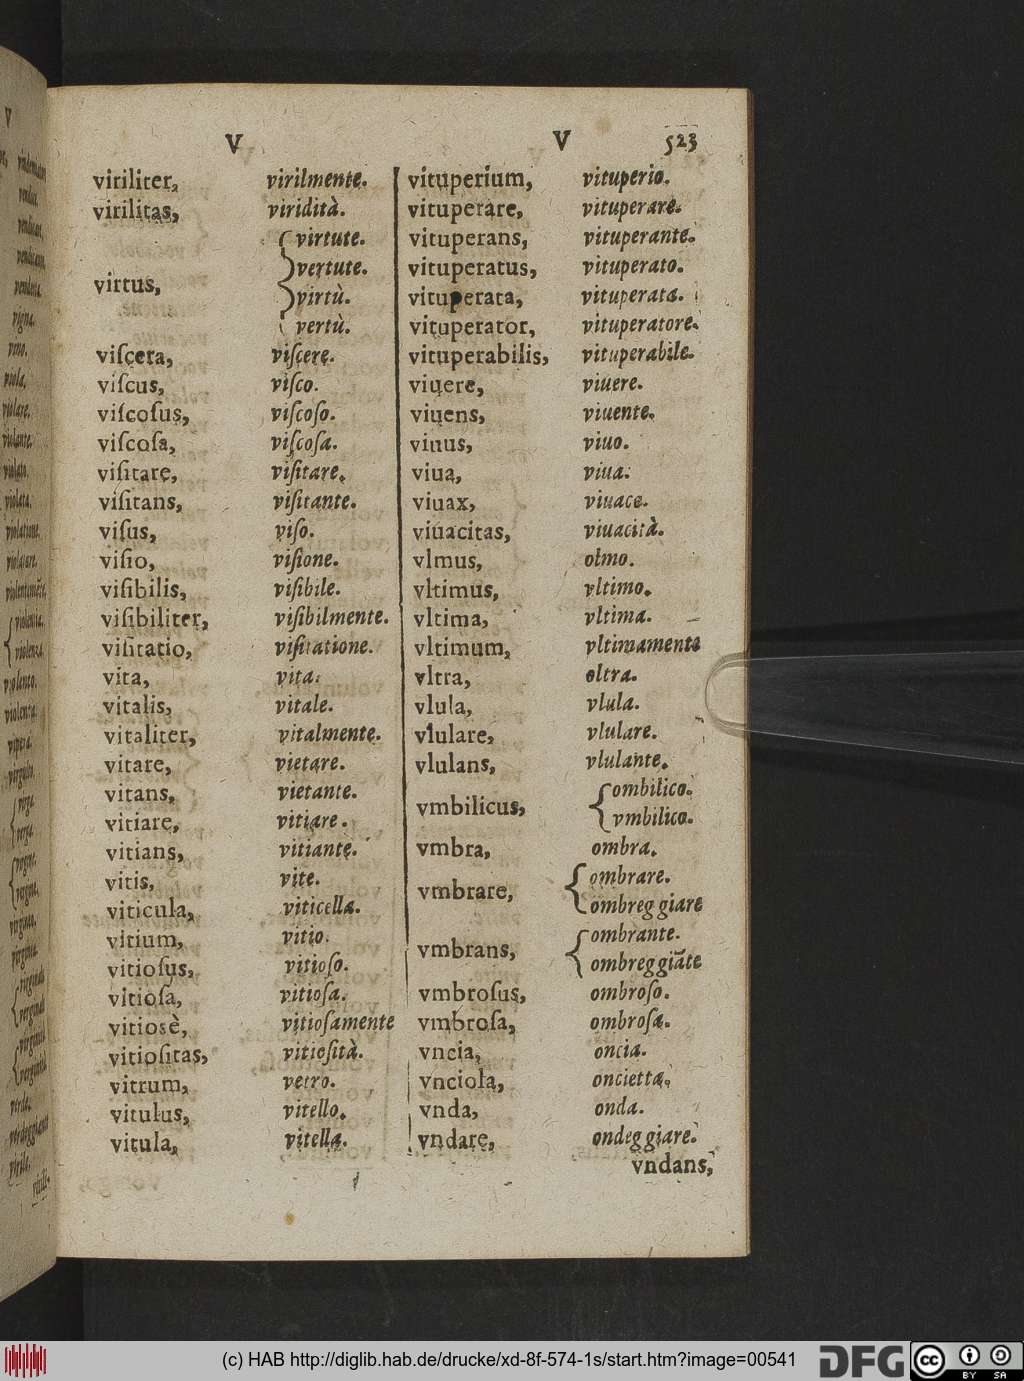 V V 523
viriliter, virilmente.
virilitas, viridità.
virtus, virtute.
vertute.
virtù.
vertù.
viſcera, viſcere.
viſcus, viſco.
viſcoſus, viſcoſo.
viſcoſa, viſcoſa.
viſitare, viſitare.
viſitans, viſitante.
viſus, viſo.
viſio, viſione.
viſibilis, viſibile.
viſibiliter, viſibilmente.
viſitatio, viſitatione.
vita, vita.
vitalis, vitale.
vitaliter, vitalmente.
vitare, vietare.
vitans, vietante.
vitiare, vitiare.
vitians, vitiante.
vitis, vite.
viticula, viticella.
vitium, vitio.
vitioſus, vitioſo.
vitioſa, vitioſa.
vitiosè, vitioſamente
vitioſitas, vitioſità.
vitrum, vetro.
vitulus, vitello.
vitula, vitella.
vituperium, vituperio.
vituperare, vituperare.
vituperans, vituperante.
vituperatus, vituperato.
vituperata, vituperata.
vituperator, vituperatore.
vituperabilis, vituperabile.
viuere, viuere.
viuens, viuente.
viuus, viuo.
viua, viua.
viuax, viuace.
viuacitas, viuacità.
vlmus, olmo.
vltimus, vltimo.
vltima, vltima.
vltimum, vltimamente
vltra, oltra.
vlula, vlula.
vlulare, vlulare.
vlulans, vlulante.
vmbilicus, ombilico.
vmbilico.
vmbra, ombra.
vmbrare, ombrare.
ombreggiare
vmbrans, ombrante.
ombreggiãte
vmbroſus, ombroſo.
vmbroſa, ombroſa.
vncia, oncia.
vnciola, oncietta.
vnda, onda.
vndare, ondeggiare.
vndans,
(c) HAB http://diglib.hab.de/drucke/xd-8f-574-1s/start.htm?image=00541
DFG
cc BY SA